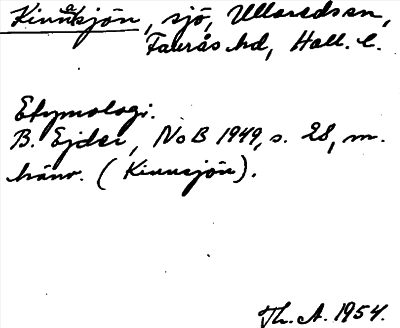 Kinnesjön, sjö, Ullareds sn,
Faurås hd, Hall. l.
Etymologi.
B. Ejder, NoB 1949, s. 28, m.
hänv. (Kinnsjön).
Th. A. 1954.